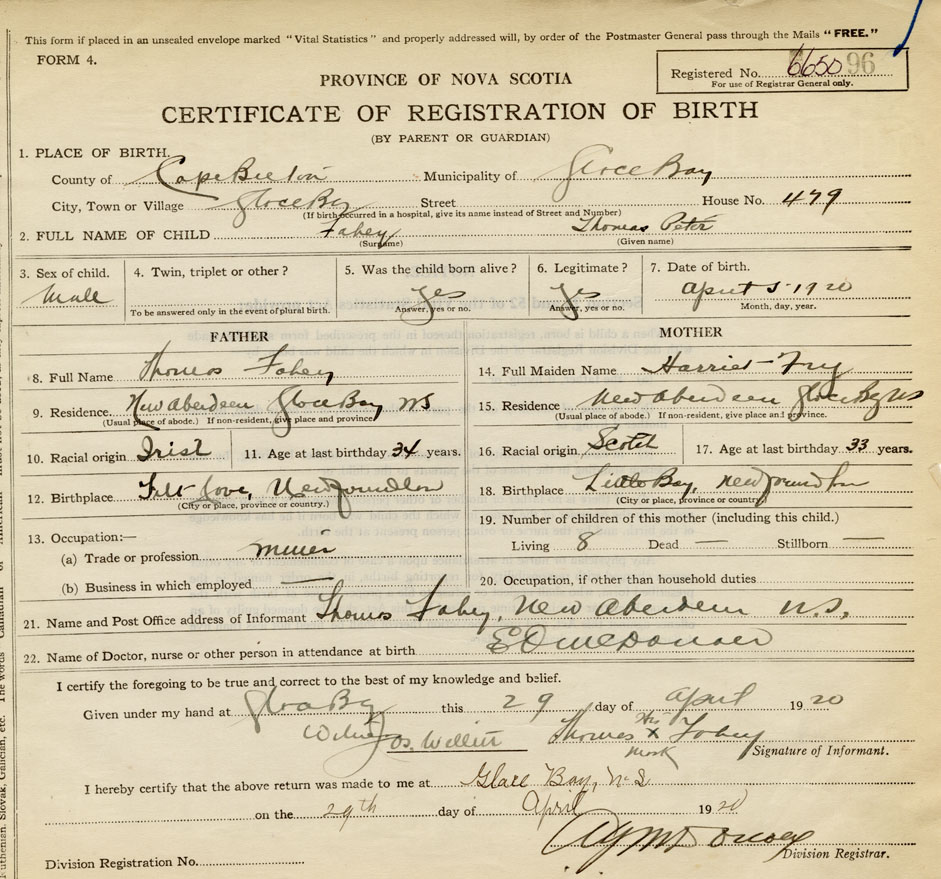 This form if placed in an unsealed envelope marked "Vital Statistics" and properly addressed will, by order of the Postmaster General pass through the Mails "FREE."
FORM 4.
Registered No. 6650 96
For use of Registrar General only.
PROVINCE OF NOVA SCOTIA
CERTIFICATE OF REGISTRATION OF BIRTH
(BY PARENT OR GUARDIAN)
1. PLACE OF BIRTH.
County of Cape Breton Municipality of Glace Bay
City, Town or Village Glace Bay Street House No. 479
(If birth occurred in a hospital, give its name instead of Street and Number)
2. FULL NAME OF CHILD Fahey Thomas Peter
(Surname) (Given name)
3. Sex of child. 4. Twin, triplet or other? 5. Was the child born alive? 6. Legitimate? 7. Date of birth.
Male Yes Yes April 5 1920
To be answered only in the event of plural birth. Answer, yes or no. Answer, yes or no. Month, day, year.
FATHER
8. Full Name Thomas Fahey
9. Residence New Aberdeen Glace Bay NS
(Usual place of abode.) If non-resident, give place and province.
10. Racial origin Irish 11. Age at last birthday 34 years.
12. Birthplace Tilt Cove, Newfoundland
(City or place, province or country.)
13. Occupation:—
(a) Trade or profession miner
(b) Business in which employed —
MOTHER
14. Full Maiden Name Harriet Fry
15. Residence New Aberdeen Glace Bay NS
(Usual place of abode.) If non-resident, give place and province.
16. Racial origin Scotch 17. Age at last birthday 33 years.
18. Birthplace Little Bay, Newfoundland
(City or place, province or country.)
19. Number of children of this mother (including this child.)
Living 8 Dead — Stillborn —
20. Occupation, if other than household duties
21. Name and Post Office address of Informant Thomas Fahey, New Aberdeen N.S.
22. Name of Doctor, nurse or other person in attendance at birth
I certify the foregoing to be true and correct to the best of my knowledge and belief.
Given under my hand at Glace Bay this 29 day of April 1920
his
Thomas x Fahey
mark Signature of Informant.
I hereby certify that the above return was made to me at Glace Bay, N.S
on the 29th day of April 1920
Division Registrar.
Division Registration No.